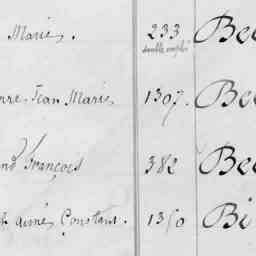 Marie. 233 Bee
double emploi
erre Jean Marie 1307. Bee
and François 382 Bee
t aimé Constant. 1350 Bi